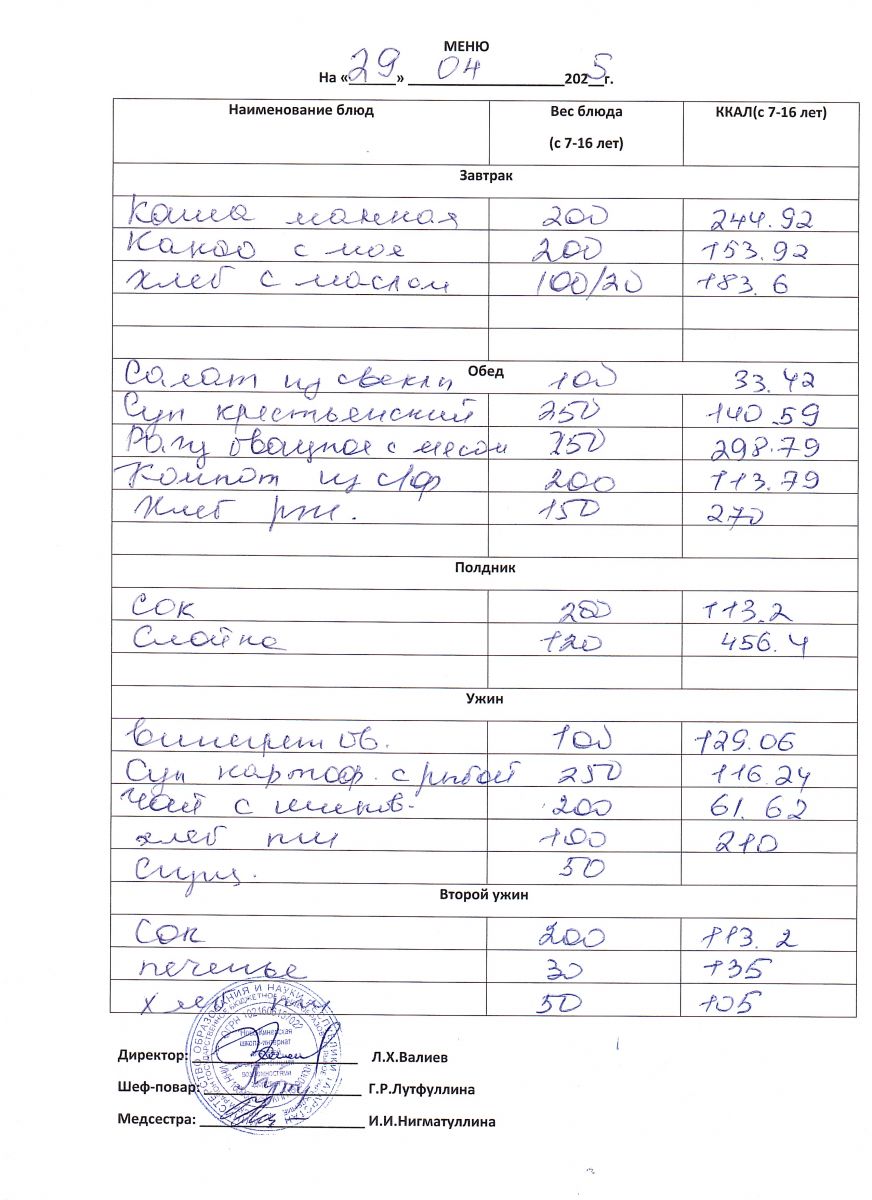 МЕНЮ
На «29» 04 2025г.
Наименование блюд Вес блюда (с 7-16 лет) ККАЛ(с 7-16 лет)
Завтрак
Каша манная 200 244.92
Какао с мол 200 153.92
хлеб с маслом 100/20 183.6
Обед
Салат из свеклы 100 33.42
Суп крестьенский 250 140.59
Рагу овощное с мясом 250 298.79
Компот из с/ф 200 113.79
Хлеб рж. 150 270
Полдник
Сок 200 113.2
Слойка 120 456.4
Ужин
Винегрет ов. 100 129.06
Суп картоф. с рыбой 250 116.24
Чай с шипов. 200 61.62
хлеб пш 100 210
50
Второй ужин
Сок 200 113.2
печенье 30 135
хлеб пш 50 105
Директор: Л.Х.Валиев
Шеф-повар: Г.Р.Лутфуллина
Медсестра: И.И.Нигматуллина